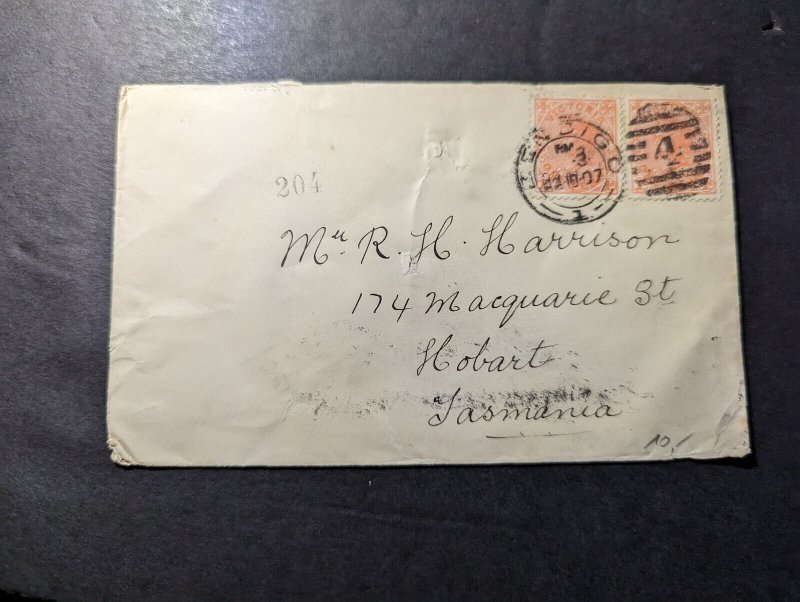 VICTORIA
BENDIGO
3
22 10-07
1
4
204
Mr R. H. Harrison
174 Macquarie St
Hobart
Tasmania
10,